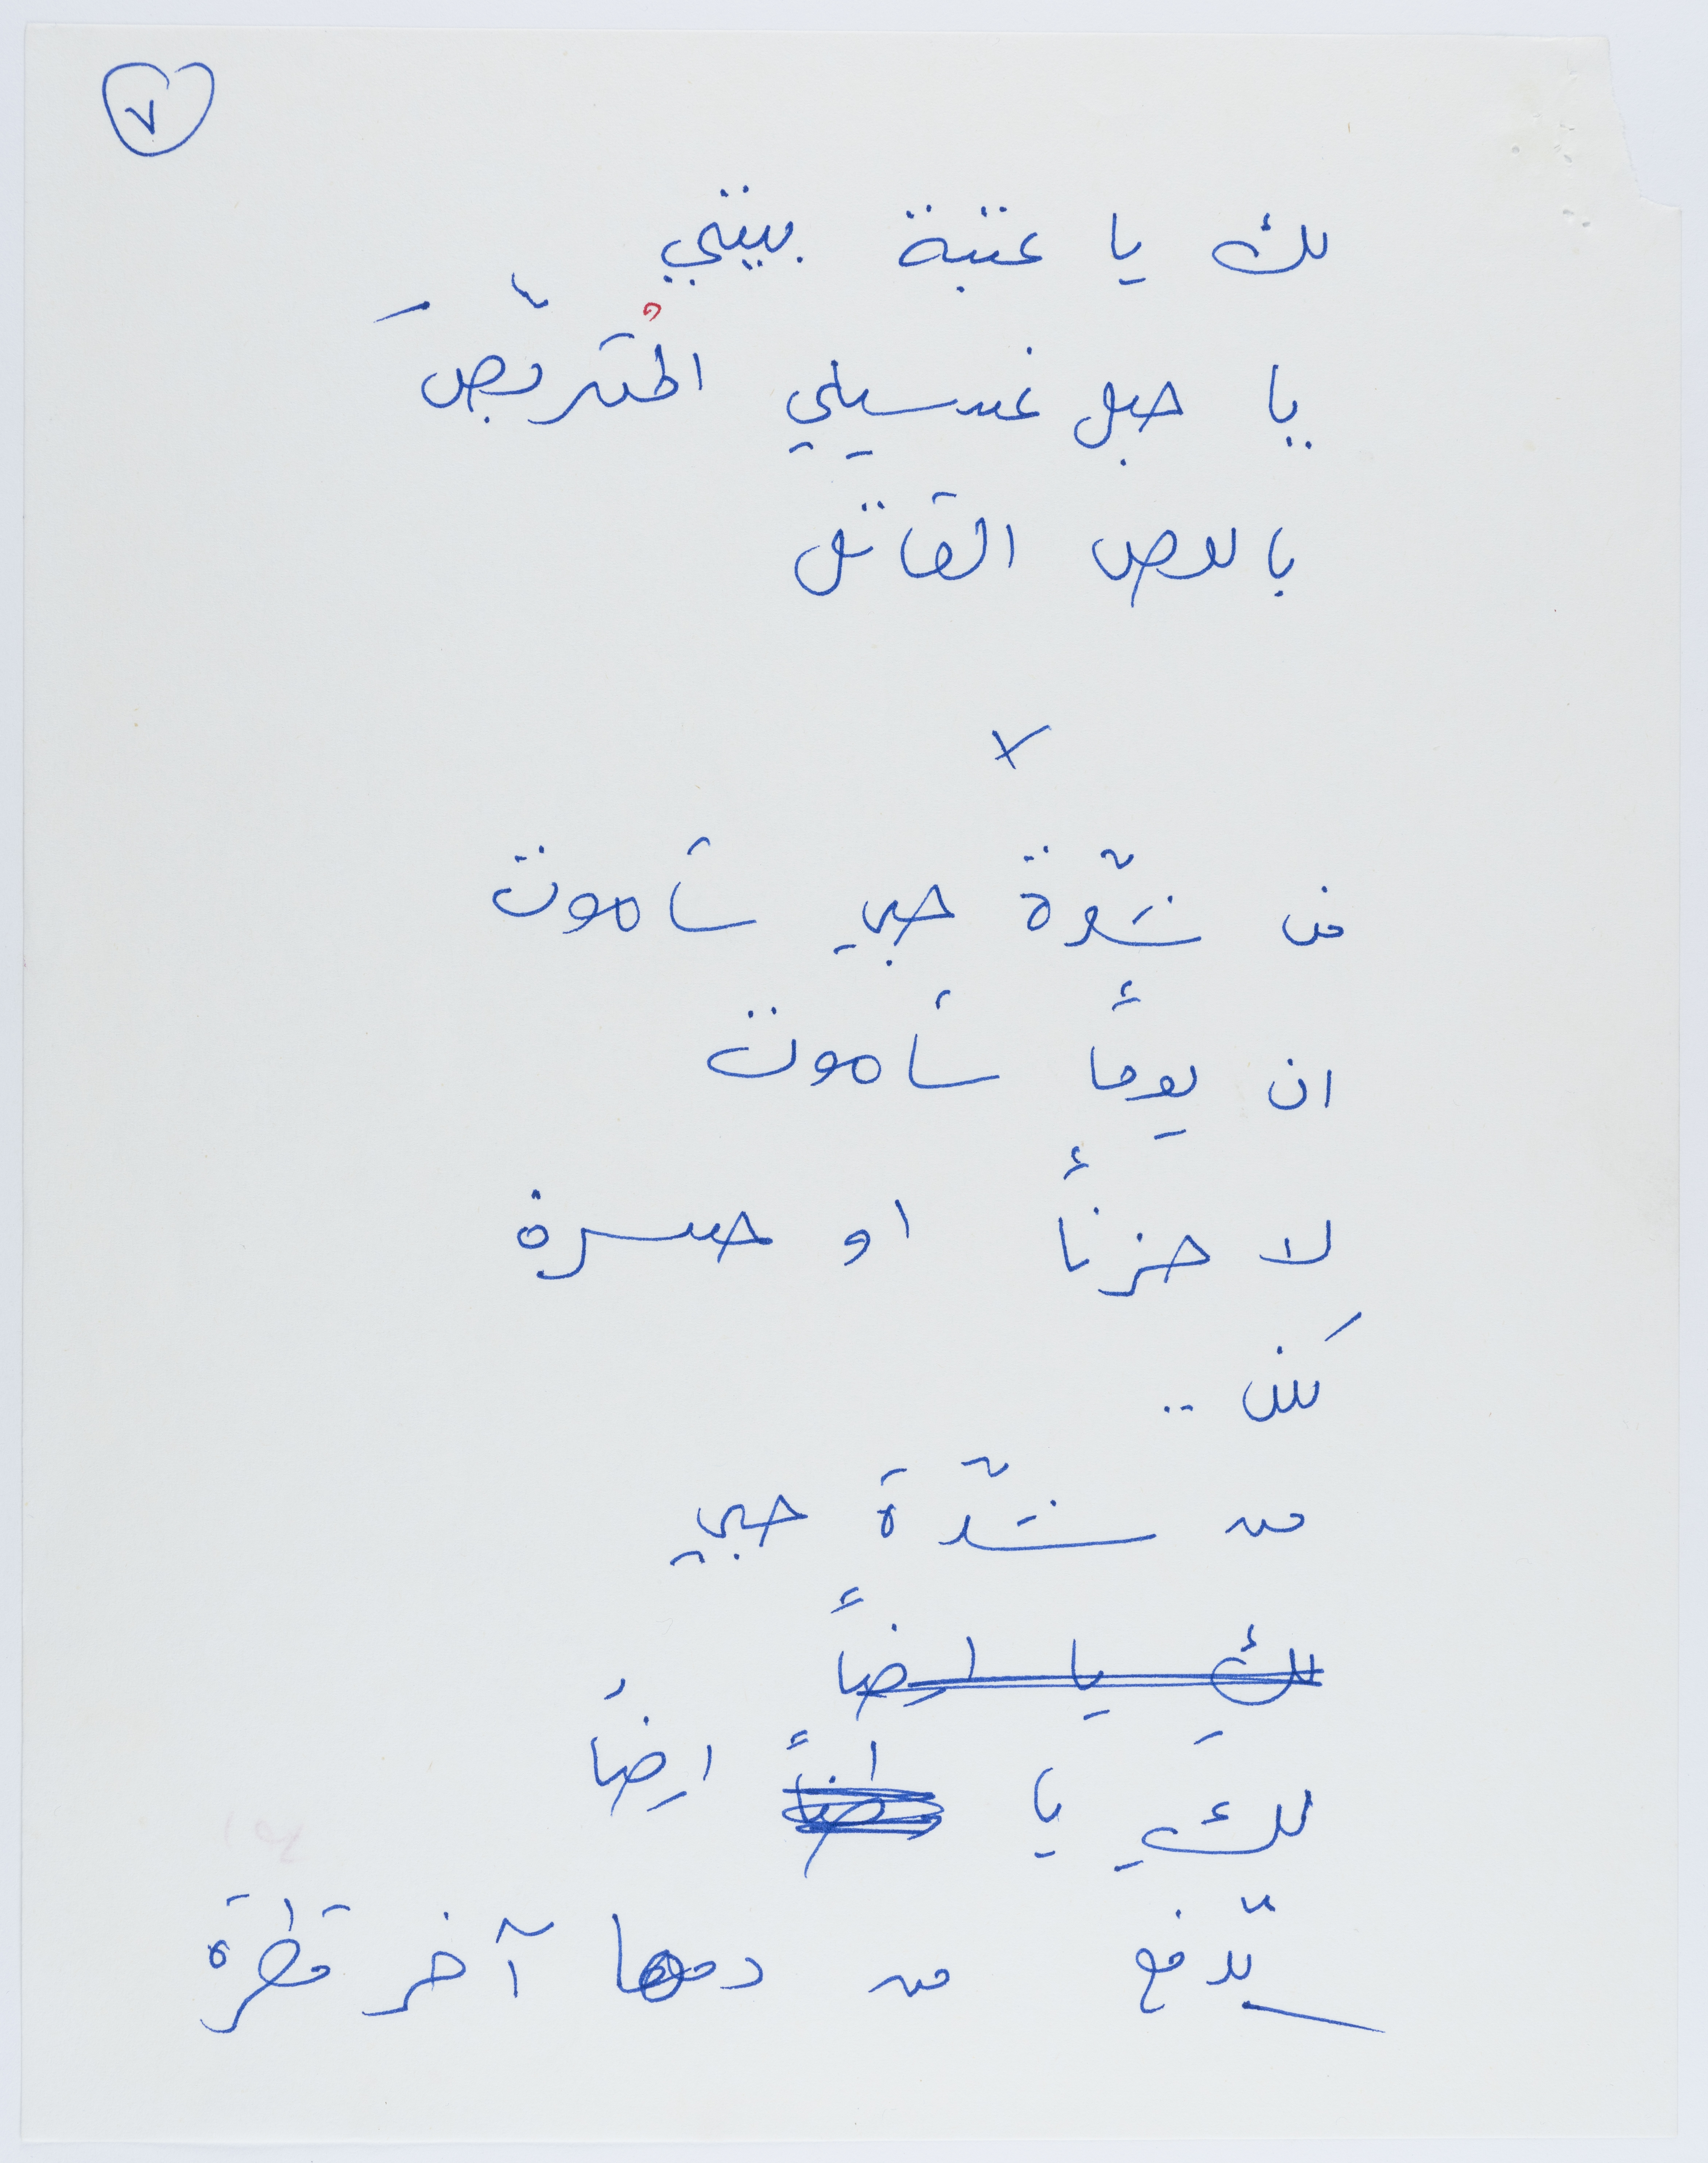 ٧
لك يا عتبة بيتي
يا حبل غسيلي المُتربّصَ
باللص القاتل
x
من شدّة حبي سأموت
ان يوماً سأموت
لا حزناً او حسرة
لكن ..
من شدّة حبي
لك يا ارضاً
لكِ يا ارضاً
تدفع من دمها آخر قطرة